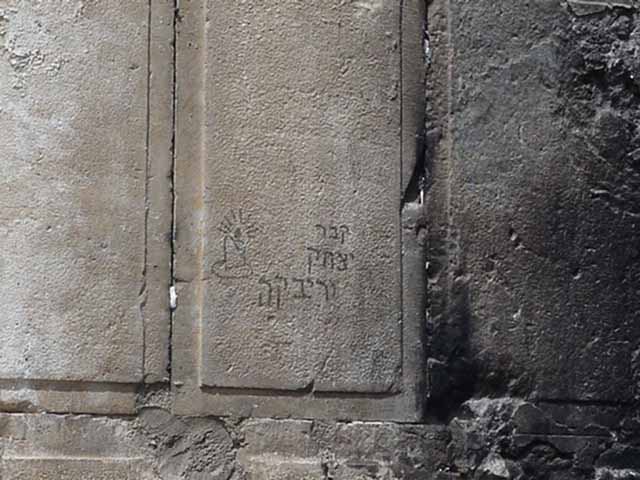 קבר
יצחק
וריבקה